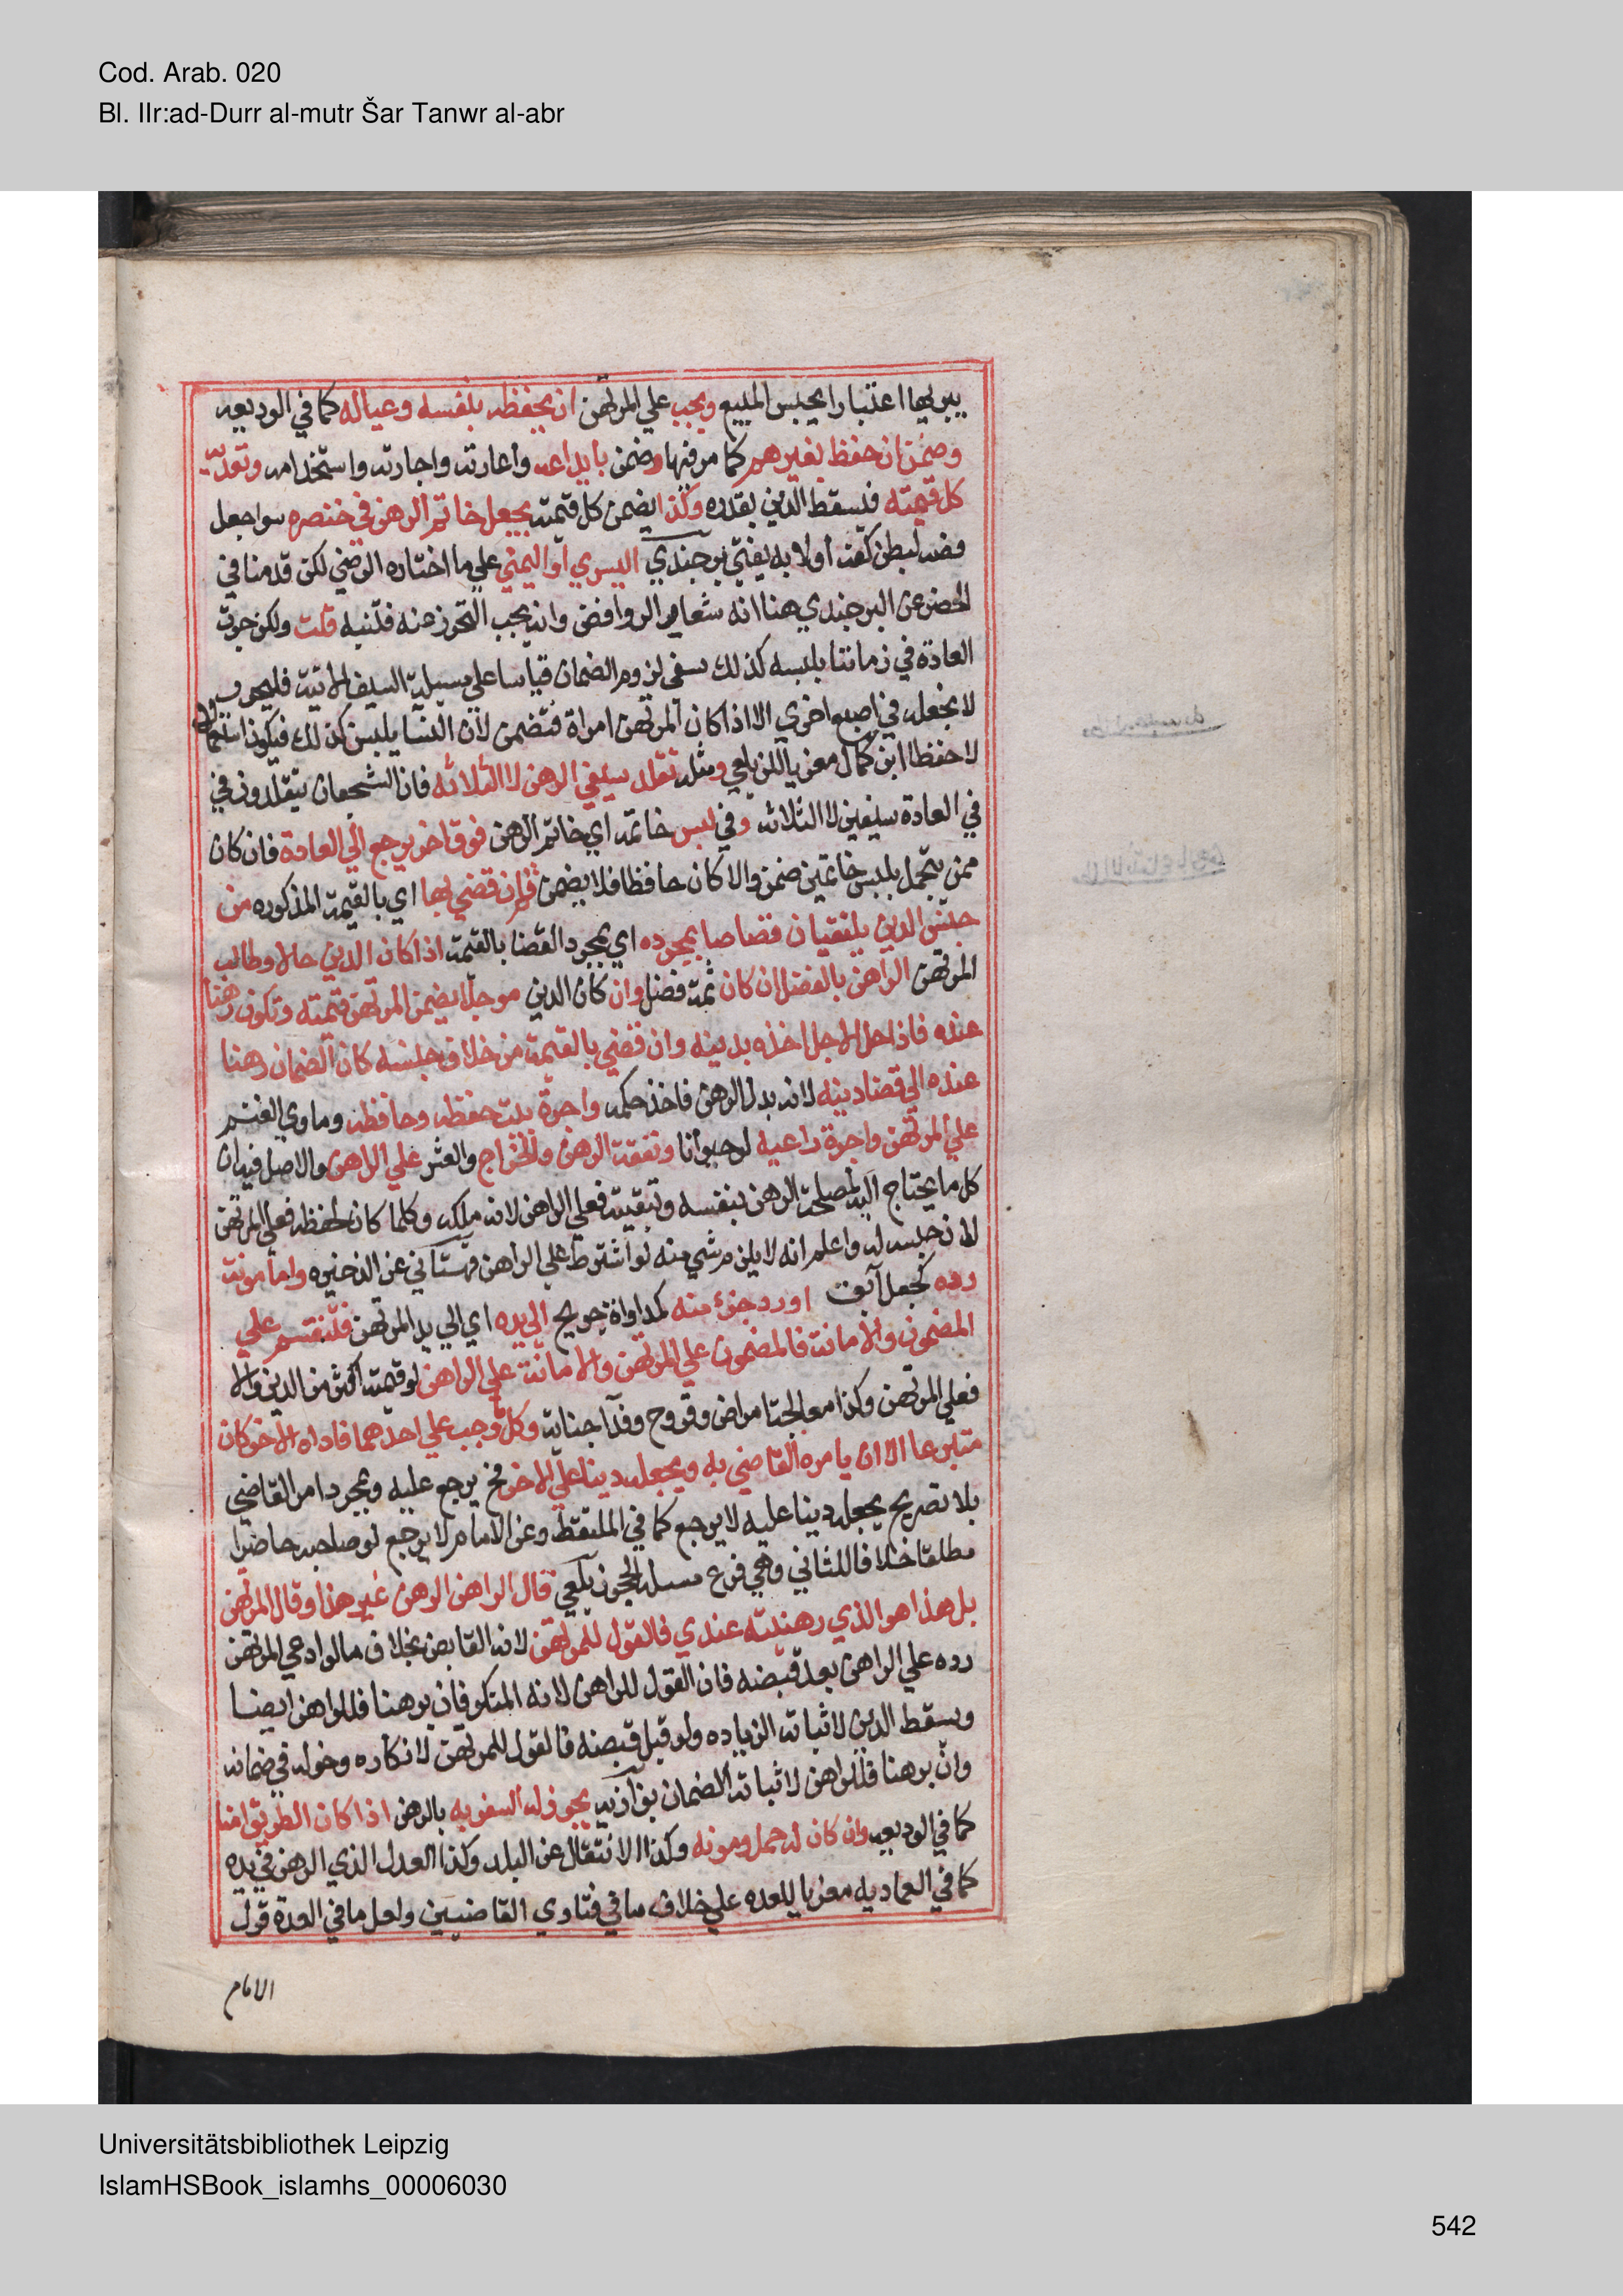 Cod. Arab. 020
Bl. IIr:ad-Durr al-mutr Šar Tanwr al-abr
يبريها اعتبارا بحبس المبيع ويجب علي المرتهن ان يحفظه بنفسه وعياله كما في الوديعه
وضمن ان حفظ بغيرهم كما مر فيها وضمن بايداعه واعارته واجارته واستخدامه وتعديه
كل قيمته فيسقط الدين بقدره وكذا يضمن كل قيمته بجعل خاتم الرهن في خنصره سوا جعل
فصه لبطن كفه اولا به يفتي برجندي اليسري او اليمني علي ما اختاره الرضي لكن قدمنا في
الحضر عن البرجندي هنا انه شعار الروافض وانه يجب التحرز عنه فتنبه قلت ولكن جرت
العادة في زماننا بلبسه كذلك ينبغي لزوم الضمان قياسا علي مسيلة السيف الاتية فليحرر
لا بجعله في اصبع اخري الا اذا كان المرتهن امراة فتضمن لان النسا يلبسن كذلك فيكون استعمالا
لا حفظا ابن كمال معزيا للزيلعي ومثله تقلد سيفي الرهن لا الثلاثه فان الشجعان يتقلدون في
في العادة سيفين لا الثلاثه وفي لبس خاتمه اي خاتم الرهن فوق اخر يرجع الي العادة فان كان
ممن يتجمل بلبس خاتمين ضمن والا كان حافظا فلا يضمن ثم ان قضي بها اي بالقيمة المذكوره من
جنس الدين يلتقيان قصاصا بمجرده اي بمجرد القضا بالقيمة اذا كان الدين حالا وطالب
المرتهن الراهن بالفضل ان كان ثمة فضل وان كان الدين موجلا يضمن المرتهن قيمته وتكون رهنا
عنده فاذا حل الاجل اخذه بدينه وان قضي بالقيمة من خلاف جنسه كان الضمان رهنا
عنده الي قضا دينه لانه بدل الرهن فاخذ حكمه واجرة بيت حفظه وحافظه وماوي الغنم
علي المرتهن واجرة راعيه لو حيوانا ونفقة الرهن والخراج والعشر علي الراهن والاصل فيه ان
كل ما يحتاج اليه لمصلحة الرهن بنفسه وتبقيته فعلي الراهن لانه ملكه وكلما كان لحفظه فعلي المرتهن
لان حبسه له واعلم انه لا يلزم شي منه لو اشترط علي الراهن قهستاني عن الذخيره واما مونة
رده كجعل آبق او رد جزء منه كمداواة جريح الي يده اي الي يد المرتهن فتنقسم علي
المضمون والامانة فالمضمون علي المرتهن والامانة علي الراهن لو قيمته اكثر من الدين والا
فعلي المرتهن وكذا معالجة امراض وقروح وفدآ جناية وكل ما وجب علي احدهما فاداه الاخر كان
متبرعا الا ان يامره القاضي به ويجعله دينا علي الاخر فح يرجع عليه وبمجرد امر القاضي
بلا تصريح بجعله دينا عليه لا يرجع كما في الملتقط وعن الامام لا يرجع لو صاحبه حاضرا
مطلقا خلافا للثاني وهي فرع مسيلة الحجر زيلعي قال الراهن الرهن غير هذا وقال المرتهن
بل هذا هو الذي رهنته عندي فالقول للمرتهن لانه القابض بخلاف ما لو ادعي المرتهن
رده علي الراهن بعد قبضه فان القول للراهن لانه المنكر فان برهنا فللراهن ايضا
ويسقط الدين لاثباته الزياده ولو قبل قبضه فالقول للمرتهن لانكاره دخوله في ضمانه
وان برهنا فللراهن لاثباته الضمان بزازيه يجوز له السفر به بالرهن اذا كان الطريق امنا
كما في الوديعه وان كان له حمل ومونه وكذا الانتقال عن البلد وكذا العدل الذي الرهن في يده
كما في العماديه معزيا للعده علي خلاف ما في فتاوي القاضيين ولعل ما في العدة قول
الامام
Universitätsbibliothek Leipzig
IslamHSBook_islamhs_00006030
542